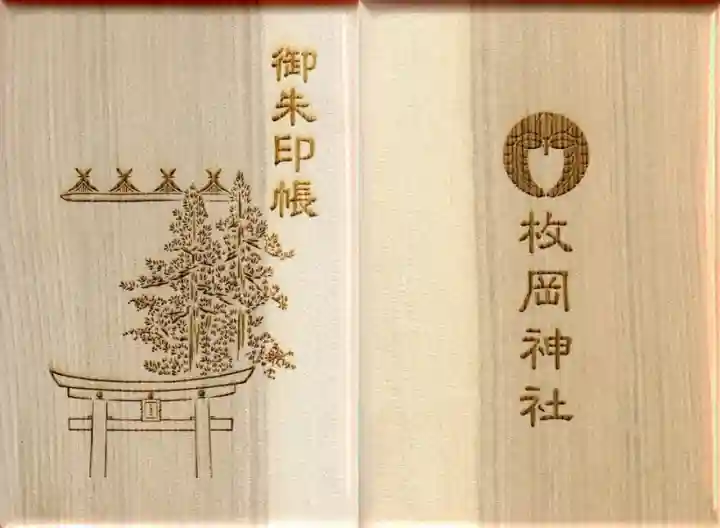 御朱印帳
枚岡神社